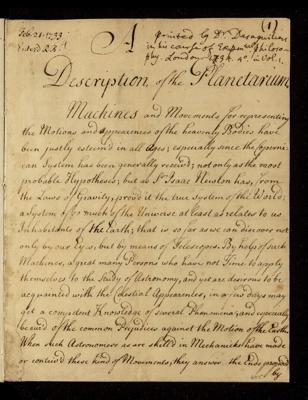 (1)
Feb. 21. 1733
printed by Dr. Desaguliers
in his course of Experimental Philoso-
phy. London 1734. 4o. in Vol. 1.
A
Description of the Planetarium.
Machines and Movements for representing
the Motions and appearances of the heavenly Bodies have
been justly esteem'd in all Ages; especially since the Coperni-
can System has been generally receiv'd; not only as the most
probable Hypotheses; but as Sr. Isaac Newton has, from
the Laws of Gravity, prov'd it the true System of the World;
a System of so much of the Universe at least as relates to us
Inhabitants of the Earth; that is so far as we can discover not
only by our Eyes, but by means of Telescopes. By help of such
Machines, a great many Persons who have not Time to apply
themselves to the Study of Astronomy, and yet are desirous to be
acquainted with the Celestial Appearances, in a few days may
get a competent Knowledge of several Phænomena; and especially
be cured of the common Prejudices against the Motion of the Earth.
When such Astronomers as are skill'd in Mechanicks have made
or contriv'd these kind of Movements, they answer the Ends propos'd
by